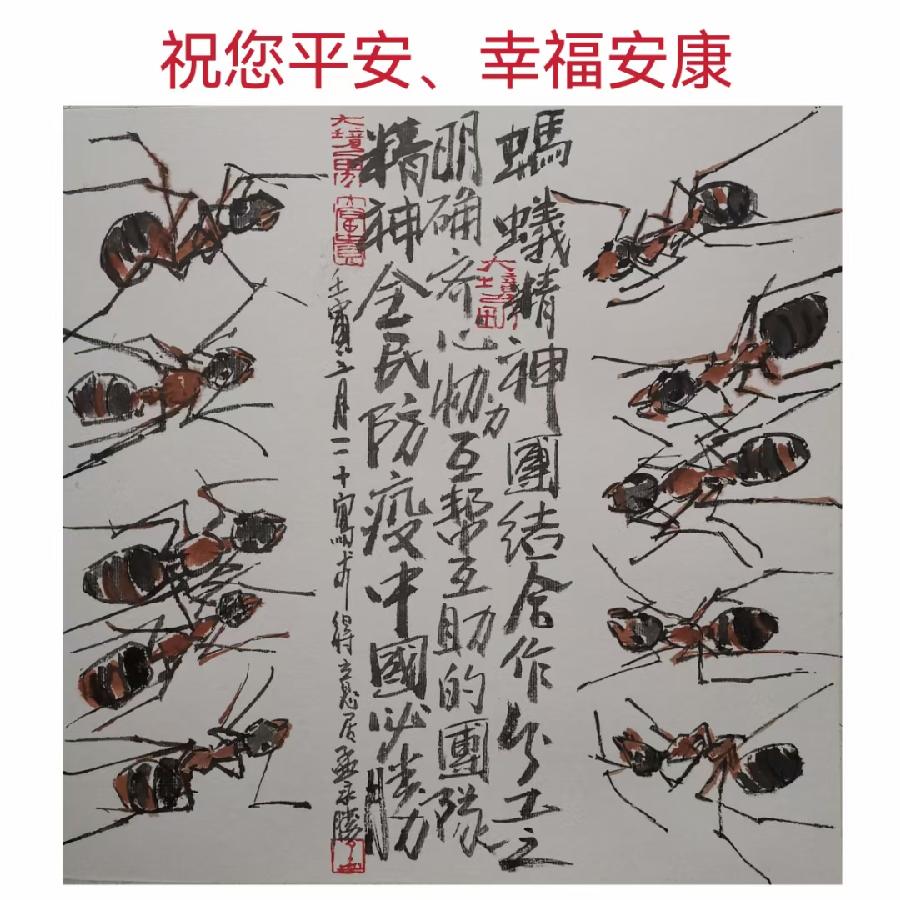 祝您平安、幸福安康
螞蟻精神團结合作分工
明确齐心协力互帮互助的團隊
精神全民防疫中國必勝
壬寅三月二十寫于得意居孟永勝